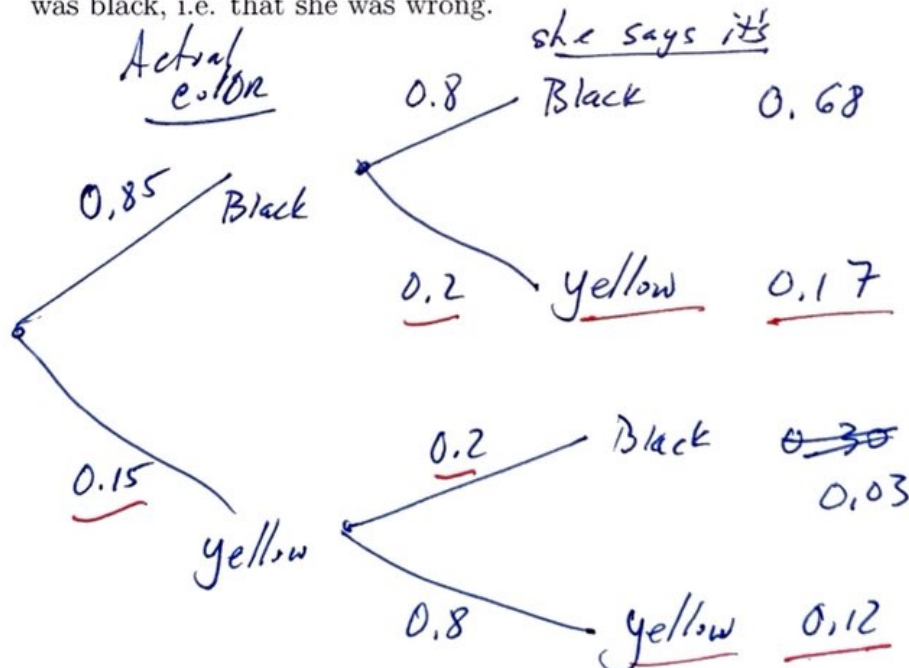 was black, i.e. that she was wrong.
Actual color
she says it's
0.85
Black
0.8
Black
0.68
0.2
yellow
0.17
0.15
yellow
0.2
Black
0.30
0.03
0.8
yellow
0.12